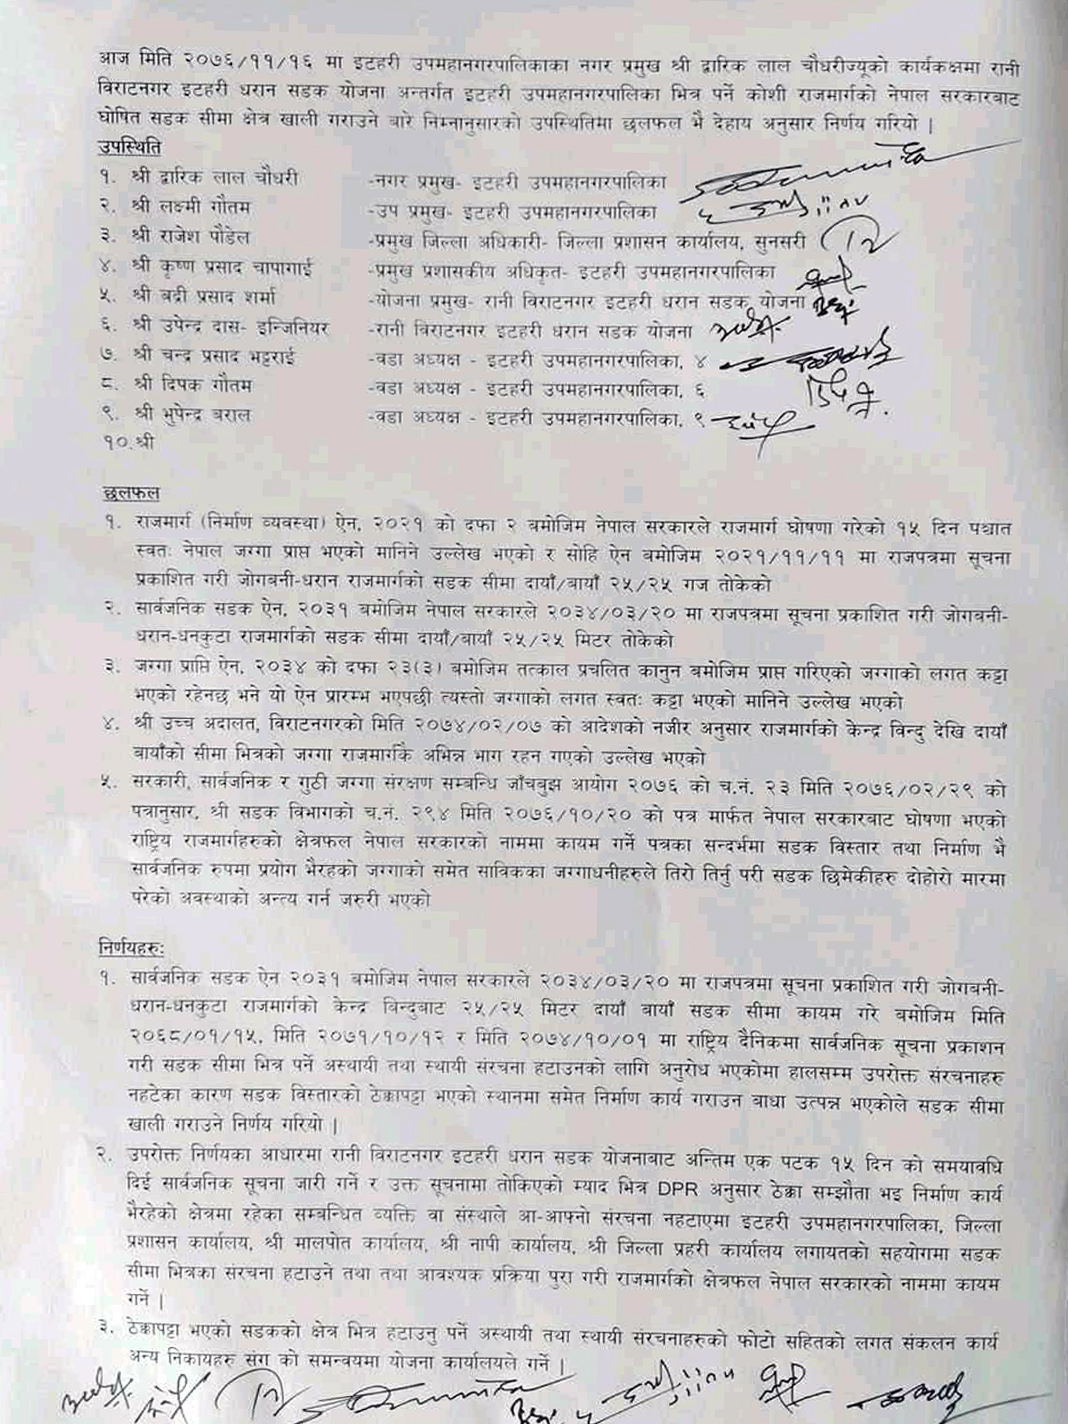 आज मिति २०७६/११/१६ मा इटहरी उपमहानगरपालिकाका नगर प्रमुख श्री द्वारिक लाल चौधरीज्यूको कार्यकक्षमा रानी
विराटनगर इटहरी धरान सडक योजना अन्तर्गत इटहरी उपमहानगरपालिका भित्र पर्ने कोशी राजमार्गको नेपाल सरकारबाट
घोषित सडक सीमा क्षेत्र खाली गराउने बारे निम्नानुसारको उपस्थितिमा छलफल भै देहाय अनुसार निर्णय गरियो |
उपस्थिति
१. श्री द्वारिक लाल चौधरी -नगर प्रमुख- इटहरी उपमहानगरपालिका
२. श्री लक्ष्मी गौतम -उप प्रमुख- इटहरी उपमहानगरपालिका
३. श्री राजेश पौडेल -प्रमुख जिल्ला अधिकारी- जिल्ला प्रशासन कार्यालय, सुनसरी
४. श्री कृष्ण प्रसाद चापागाई -प्रमुख प्रशासकीय अधिकृत- इटहरी उपमहानगरपालिका
५. श्री बद्री प्रसाद शर्मा -योजना प्रमुख- रानी विराटनगर इटहरी धरान सडक योजना
६. श्री उपेन्द्र दास- इन्जिनियर -रानी विराटनगर इटहरी धरान सडक योजना
७. श्री चन्द्र प्रसाद भट्टराई -वडा अध्यक्ष - इटहरी उपमहानगरपालिका, ४
८. श्री दिपक गौतम -वडा अध्यक्ष - इटहरी उपमहानगरपालिका, ६
९. श्री भुपेन्द्र बराल -वडा अध्यक्ष - इटहरी उपमहानगरपालिका, ९
१०.श्री
छलफल
१. राजमार्ग (निर्माण व्यवस्था) ऐन, २०२१ को दफा २ बमोजिम नेपाल सरकारले राजमार्ग घोषणा गरेको १५ दिन पश्चात
स्वतः नेपाल जग्गा प्राप्त भएको मानिने उल्लेख भएको र सोहि ऐन बमोजिम २०२१/११/११ मा राजपत्रमा सूचना
प्रकाशित गरी जोगबनी-धरान राजमार्गको सडक सीमा दायाँ/बायाँ २५/२५ गज तोकेको
२. सार्वजनिक सडक ऐन, २०३१ बमोजिम नेपाल सरकारले २०३४/०३/२० मा राजपत्रमा सूचना प्रकाशित गरी जोगबनी-
धरान-धनकुटा राजमार्गको सडक सीमा दायाँ/बायाँ २५/२५ मिटर तोकेको
३. जग्गा प्राप्ति ऐन, २०३४ को दफा २३(३) बमोजिम तत्काल प्रचलित कानुन बमोजिम प्राप्त गरिएको जग्गाको लगत कट्टा
भएको रहेनछ भने यो ऐन प्रारम्भ भएपछी त्यस्तो जग्गाको लगत स्वतः कट्टा भएको मानिने उल्लेख भएको
४. श्री उच्च अदालत, विराटनगरको मिति २०७४/०२/०७ को आदेशको नजीर अनुसार राजमार्गको केन्द्र विन्दु देखि दायाँ
बायाँको सीमा भित्रको जग्गा राजमार्गकै अभिन्न भाग रहन गएको उल्लेख भएको
५. सरकारी, सार्वजनिक र गुठी जग्गा संरक्षण सम्बन्धि जाँचबुझ आयोग २०७६ को च.नं. २३ मिति २०७६/०२/२९ को
पत्रानुसार, श्री सडक विभागको च.नं. २९४ मिति २०७६/१०/२० को पत्र मार्फत नेपाल सरकारबाट घोषणा भएको
राष्ट्रिय राजमार्गहरुको क्षेत्रफल नेपाल सरकारको नाममा कायम गर्ने पत्रका सन्दर्भमा सडक विस्तार तथा निर्माण भै
सार्वजनिक रुपमा प्रयोग भैरहको जग्गाको समेत साविकका जग्गाधनीहरुले तिरो तिर्नु परी सडक छिमेकीहरु दोहोरो मारमा
परेको अवस्थाको अन्त्य गर्न जरुरी भएको
निर्णयहरु:
१. सार्वजनिक सडक ऐन २०३१ बमोजिम नेपाल सरकारले २०३४/०३/२० मा राजपत्रमा सूचना प्रकाशित गरी जोगबनी-
धरान-धनकुटा राजमार्गको केन्द्र विन्दुबाट २५/२५ मिटर दायाँ बायाँ सडक सीमा कायम गरे बमोजिम मिति
२०६८/०१/१५, मिति २०७१/१०/१२ र मिति २०७४/१०/०१ मा राष्ट्रिय दैनिकमा सार्वजनिक सूचना प्रकाशन
गरी सडक सीमा भित्र पर्ने अस्थायी तथा स्थायी संरचना हटाउनको लागि अनुरोध भएकोमा हालसम्म उपरोक्त संरचनाहरु
नहटेका कारण सडक विस्तारको ठेक्कापट्टा भएको स्थानमा समेत निर्माण कार्य गराउन बाधा उत्पन्न भएकोले सडक सीमा
खाली गराउने निर्णय गरियो |
२. उपरोक्त निर्णयका आधारमा रानी विराटनगर इटहरी धरान सडक योजनाबाट अन्तिम एक पटक १५ दिन को समयावधि
दिई सार्वजनिक सूचना जारी गर्ने र उक्त सूचनामा तोकिएको म्याद भित्र DPR अनुसार ठेक्का सम्झौता भइ निर्माण कार्य
भैरहेको क्षेत्रमा रहेका सम्बन्धित व्यक्ति वा संस्थाले आ-आफ्नो संरचना नहटाएमा इटहरी उपमहानगरपालिका, जिल्ला
प्रशासन कार्यालय, श्री मालपोत कार्यालय, श्री नापी कार्यालय, श्री जिल्ला प्रहरी कार्यालय लगायतको सहयोगमा सडक
सीमा भित्रका संरचना हटाउने तथा तथा आवश्यक प्रक्रिया पुरा गरी राजमार्गको क्षेत्रफल नेपाल सरकारको नाममा कायम
गर्ने |
३. ठेक्कापट्टा भएको सडकको क्षेत्र भित्र हटाउनु पर्ने अस्थायी तथा स्थायी संरचनाहरुको फोटो सहितको लगत संकलन कार्य
अन्य निकायहरु संग को समन्वयमा योजना कार्यालयले गर्ने |